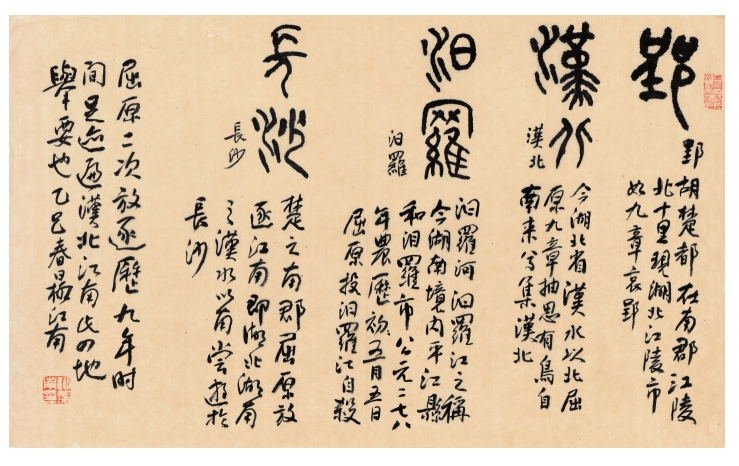 郢
郢 胡楚都 在南郡江陵
北十里 现湖北江陵市
如九章哀郢
漢北
漢北
今湖北省漢水以北屈
原九章抽思有鳥自
南来兮集漢北
汨羅
汨羅
汨羅河 汨羅江之稱
今湖南境内平江縣
和汨羅市 公元二七八
年農歷初五月五日
屈原投汨羅江自殺
長沙
長沙
楚之南郡屈原放
逐江南即湖北湖南
之漢水以南嘗遊於
長沙
屈原二次放逐歷九年时
間足迹遍漢北江南此四地
舉要也 乙巳春晨江南